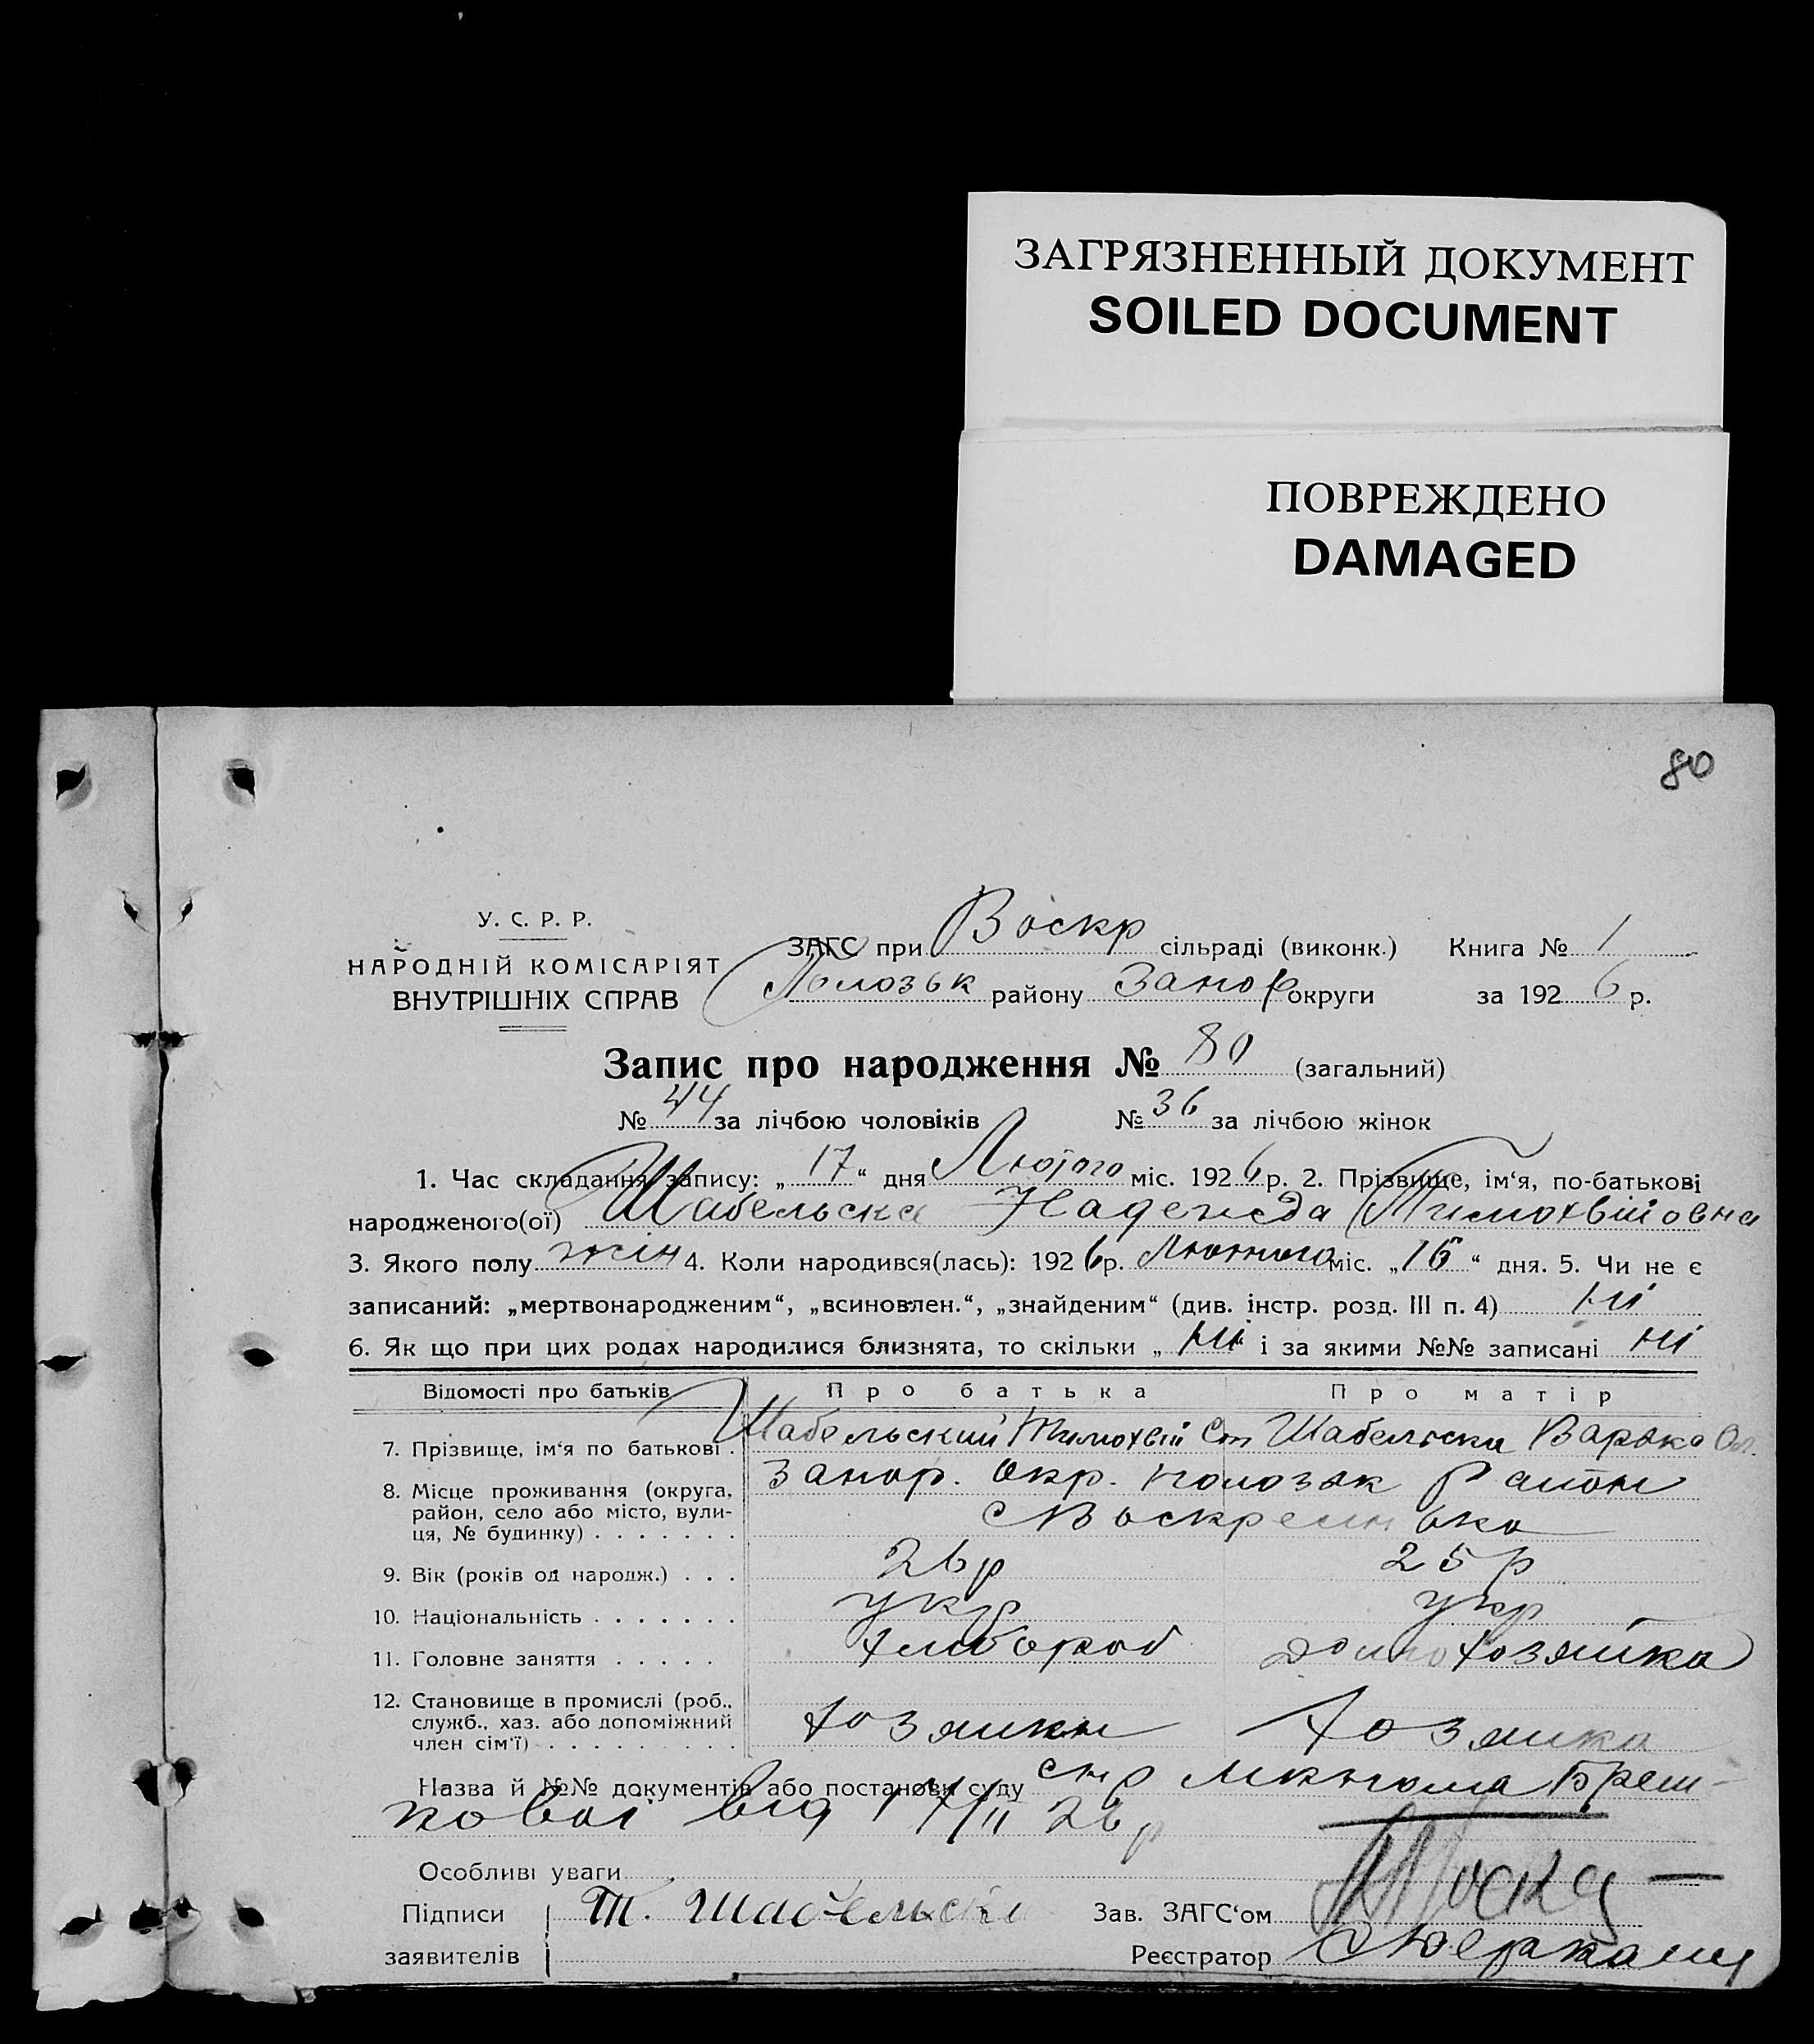 ЗАГРЯЗНЕННЫЙ ДОКУМЕНТ
SOILED DOCUMENT
ПОВРЕЖДЕНО
DAMAGED
80
У. С. Р. Р.
НАРОДНІЙ КОМІСАРІЯТ
ВНУТРІШНІХ СПРАВ
ЗАГС при Воскр сільраді (виконк.) Книга № 1
Полозьк району Запор округи за 1926 р.
Запис про народження № 80 (загальний)
№ 44 за лічбою чоловіків № 36 за лічбою жінок
1. Час складання запису: „17“ дня Лютого міс. 1926 р. 2. Прізвище, ім‘я, по-батькові
народженого(ої) Шабельска Надежда Тимохвійовна
3. Якого полу жін 4. Коли народився(лась): 1926 р. Лютого міс. „15“ дня. 5. Чи не є
записаний: „мертвонародженим“, „всиновлен.“, „знайденим“ (див. інстр. розд. III п. 4) ні
6. Як що при цих родах народилися близнята, то скільки „ні“ і за якими №№ записані ні
Відомості про батьків Про батька Про матір
7. Прізвище, ім‘я по батькові . Шабельский Тимохвій Ст Шабельска Варька Ол.
8. Місце проживання (округа, Запор. Окр. Полозьк Район
район, село або місто, вули-
ця, № будинку) . . . . . . . с Воскресенька
9. Вік (років од народж.) . . . 26 р 25 р
10. Національність . . . . . . . укр укр
11. Головне заняття . . . . . хлібороб домохозяйка
12. Становище в промислі (роб.,
служб., хаз. або допоміжний хозяикн хозяика
член сім‘ї) . . . . . . . . .
Назва й №№ документів або постанови суду
від 17/II 26 р
Особливі уваги
Підписи Т. Шабельскій Зав. ЗАГС‘ом
заявителів Реєстратор